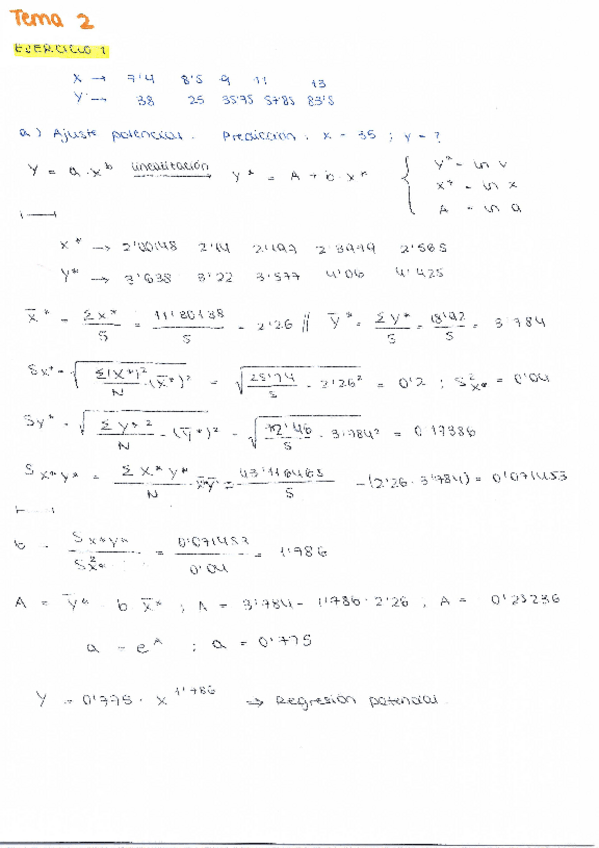 Tema 2
EJERCICIO 1
X → 7'4 8'5 9 11 13
Y → 38 25 35'75 57'85 83'5
a) Ajuste potencial. Predicción: x = 35 ; y = ?
Y = a · x^b linealización → y* = A + b · x* { y* = ln y
x* = ln x
A = ln a
x* → 2'00148 2'14 2'197 2'3979 2'565
y* → 3'638 3'22 3'577 4'06 4'425
x̄* = Σx*/5 = 11'30138/5 = 2'26 // ȳ* = Σy*/5 = 18'92/5 = 3'784
Sx* = √(Σ(x*)²/N - (x̄*)²) = √(25'74/5 - 2'26²) = 0'2 ; S²x* = 0'04
Sy* = √(Σy*²/N - (ȳ*)²) = √(72'46/5 - 3'784²) = 0'17386
Sx*y* = Σx*y*/N - x̄*ȳ* = 43'116465/5 - (2'26 · 3'784) = 0'071453
b = Sx*y*/S²x* = 0'071453/0'04 = 1'786
A = ȳ* - b x̄* ; A = 3'784 - 1'786 · 2'26 ; A = 0'25236
a = e^A ; a = 0'775
Y = 0'775 · x^1'786 ⇒ Regresión potencial.